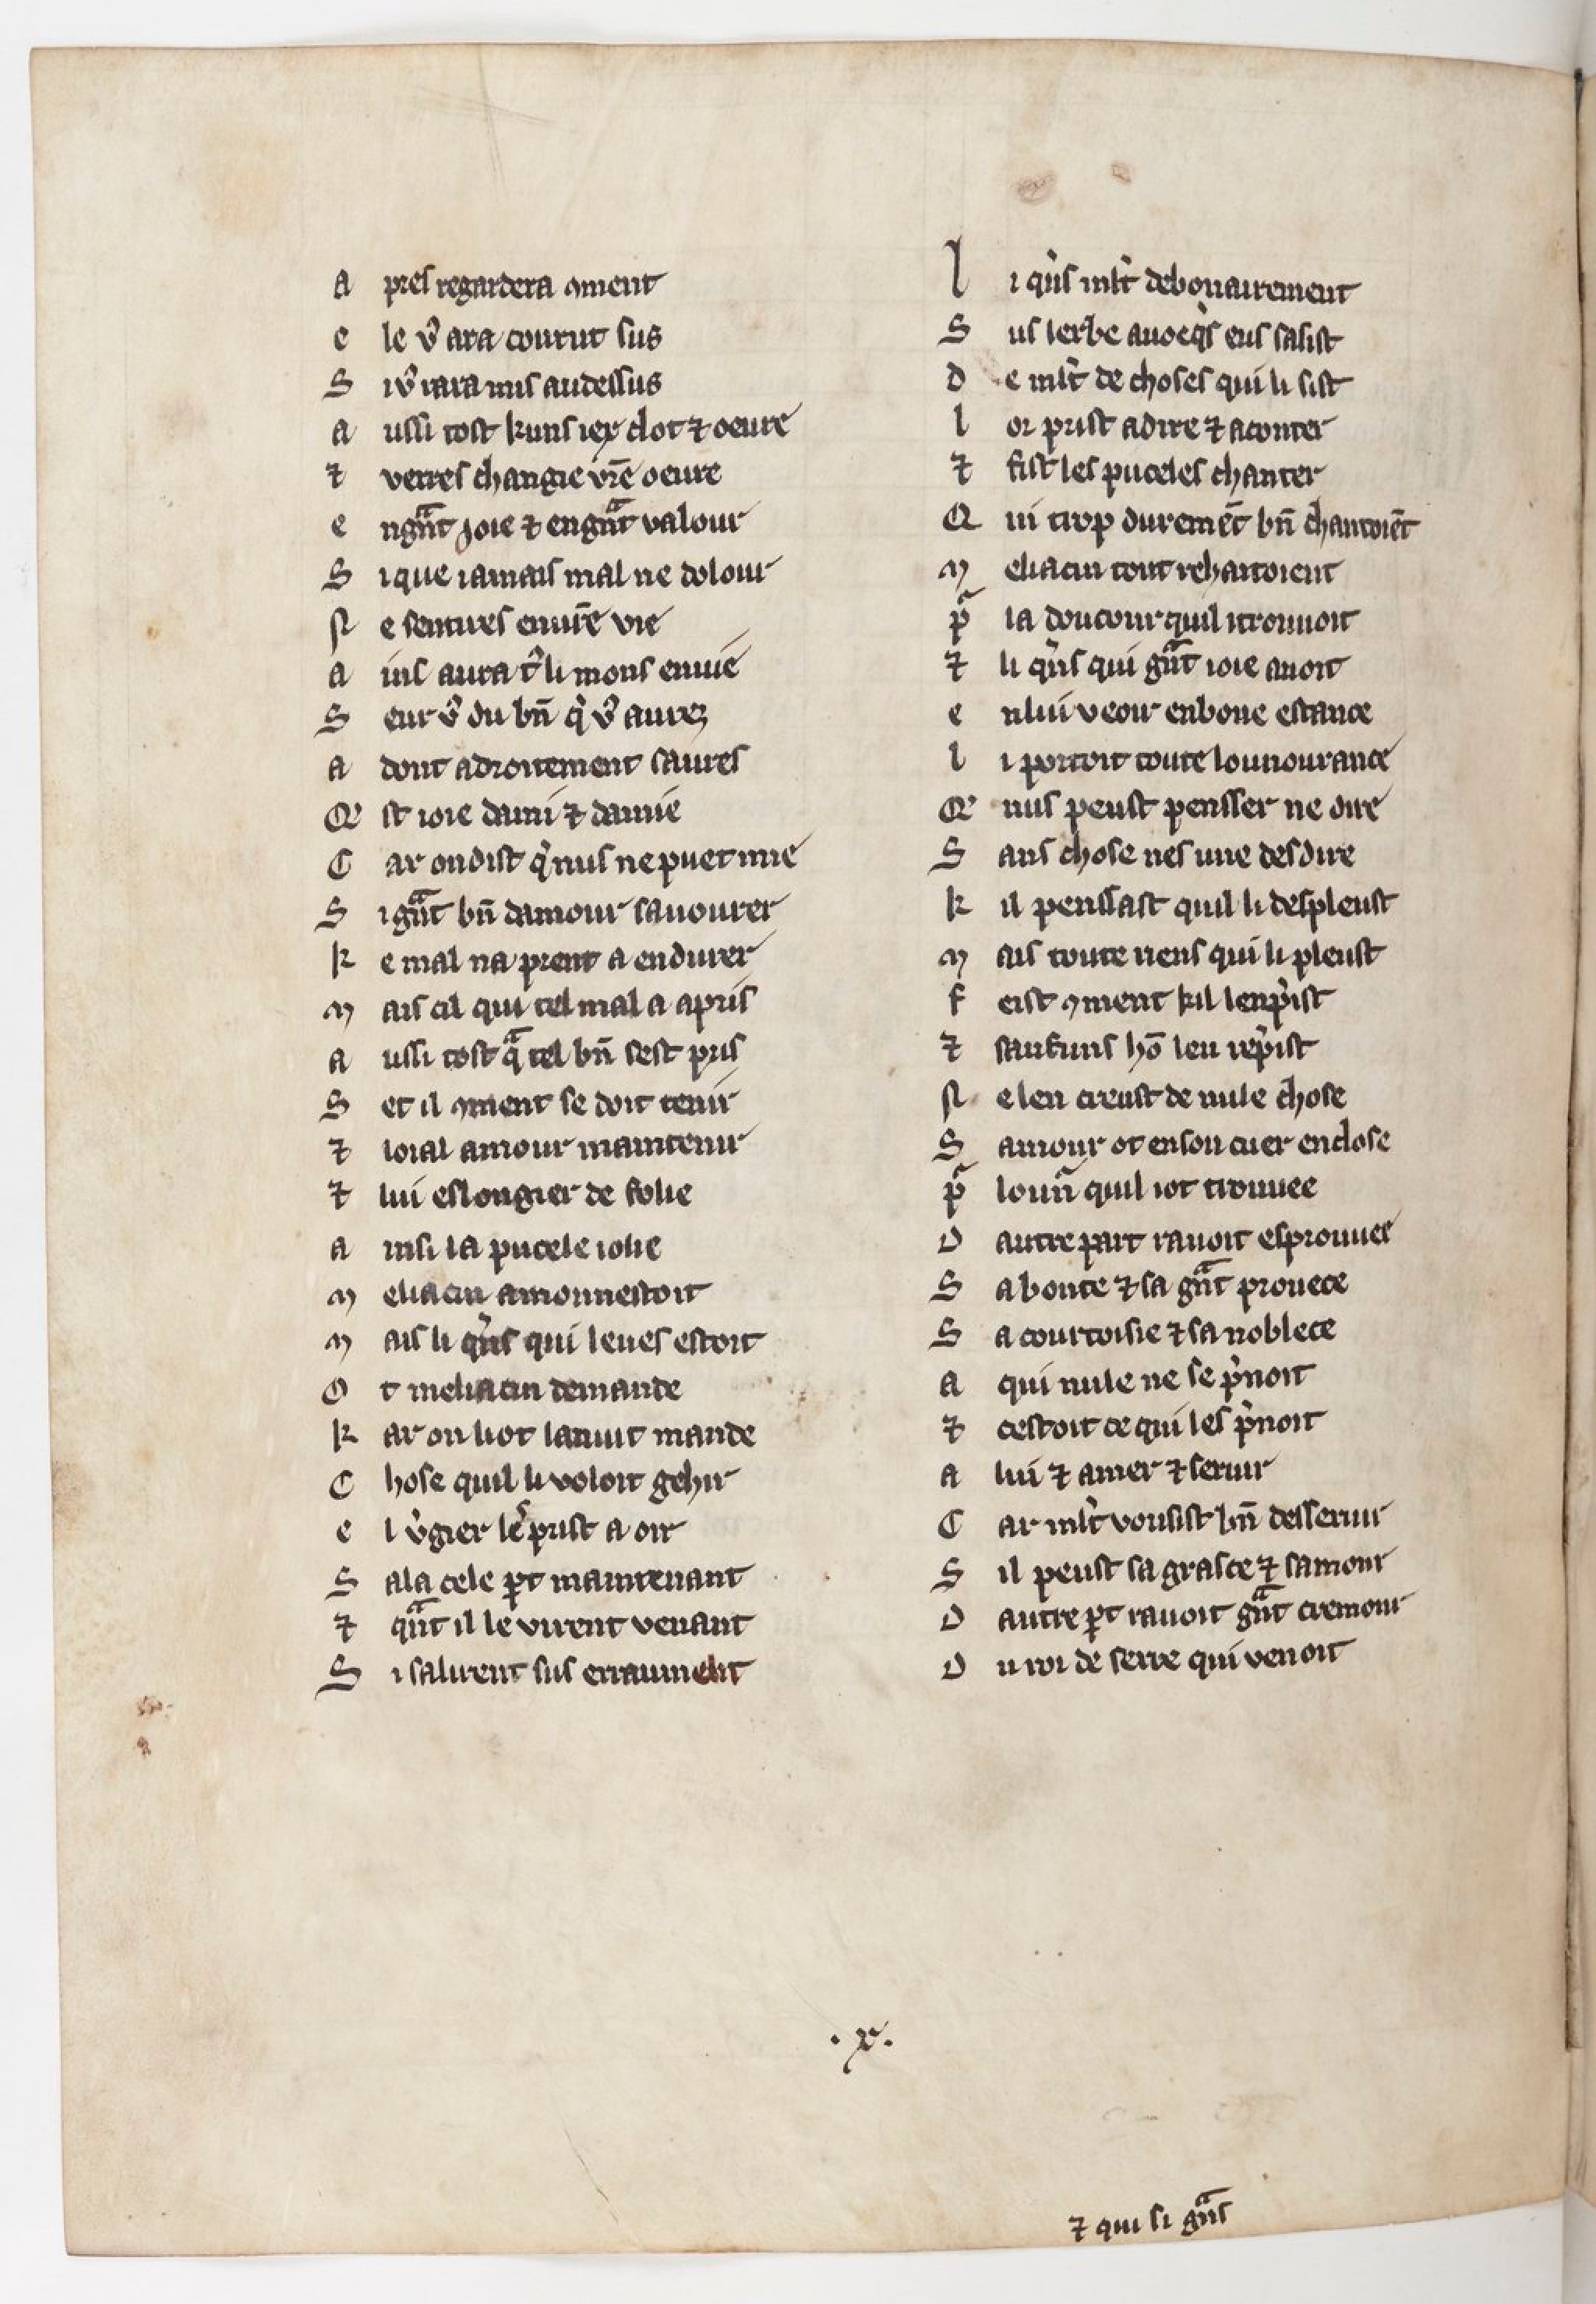 a pres regardera ꝯment
e le v͛ ara courut sus
S i v͛ rara mis audessus
a ussi tost kuns iex clot ⁊ oeure
⁊ verres changie vr̄e oeure
e ngᷓnt ioie ⁊ engᷓnt valour
S i que iamais mal ne dolour
N e sentires en vr̄e vie
a ins aura t͛ li mons enuie
S eur v͛ du bn̄ q̇ v͛ aurez
a dont adroitement saures
Q̃ st ioie dami ⁊ damie
C ar on dist q̇ nus ne puet mie
S i gᷓnt bn̄ damour sauourer
k e mal na prent a endurer
m ais cil qui tel mal a apris
a ussi tost qᷓ tel bn̄ sest pris
S et il ꝯment se doit tenir
⁊ loial amour maintenir
⁊ lui eslongier de folie
a insi la pucele iolie
m eliacin amonnestoit
m ais li q̇ns qui leues estoit
O t meliacin demande
k ar on li ot lanuit mande
C hose quil li voloit gehir
e l v͛gier le͛ prist a oir
S ala cele ꝑt maintenant
⁊ qᷓnt il le virent venant
S i salirent sus erraument
l i q̇ns ml̄t debonairement
S us lerbe auoeq̇s eus sasist
d e ml̄t de choses qui li sist
l or prist adire ⁊ aconter
⁊ fist les puceles chanter
Q ui trop duremēt bn̄ chantoiēt
m eliacin tout rehaitoient
pᷓ la doucour quil i trouuoit
⁊ li q̇ns qui gᷓnt ioie auoit
e nlui veoir enbone estance
l i portoit toute lounourance
Q̃ nus peust pensser ne dire
S ans chose nes une desdire
k il penssast quil li despleust
m ais toute riens qui li pleust
f eist ꝯment kil lenp͛ist
⁊ saufuns hō len rep͛ist
N e len creust de nule chose
S amour ot enson cuer enclose
pᷓ lounᷓ quil iot trouuee
D autre part rauoit esprouuee
S a bonte ⁊ sa gᷓnt prouece
S a courtoisie ⁊ sa noblece
a qui nule ne se p͛noit
⁊ cestoit ce qui les p͛noit
a lui ⁊ amer ⁊ seruir
C ar ml̄t vousist bn̄ desseruir
S il peust sa grasce ⁊ samour
D autre ꝑt rauoit gᷓnt cremour
D u roi de serre qui venoit
.x.
⁊ qui si gᷓns